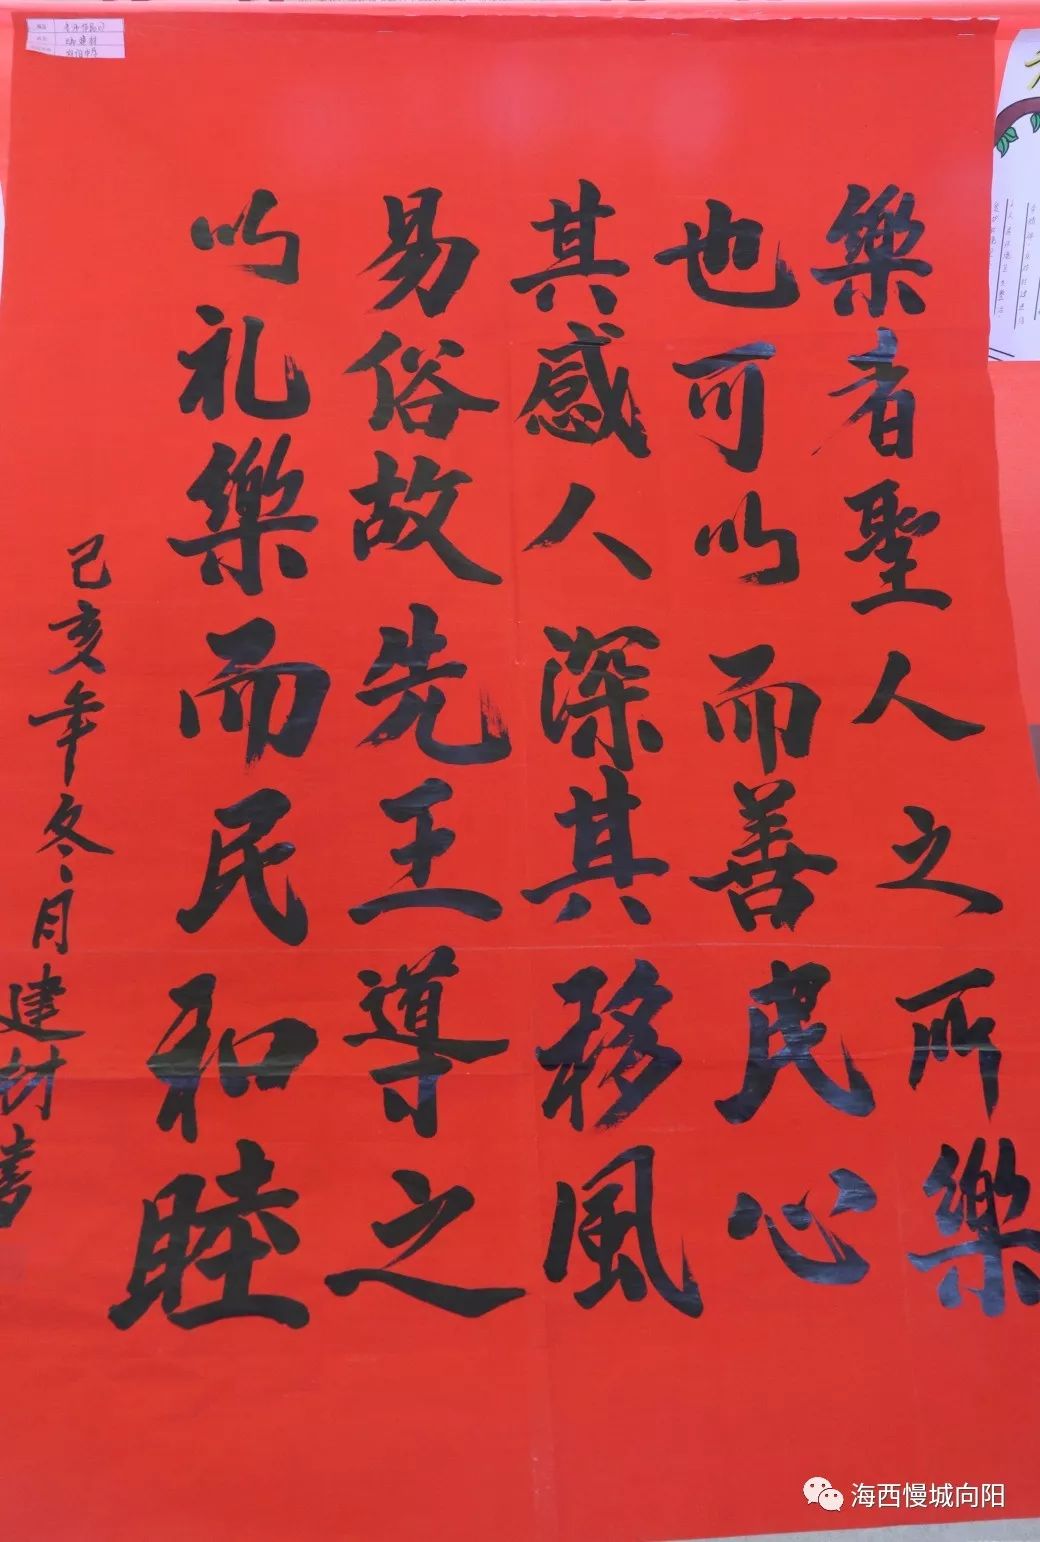 樂者聖人之所樂
也可以而善民心
其感人深其移風
易俗故先王導之
以礼樂而民和睦
己亥年冬月建材書
海西慢城向阳